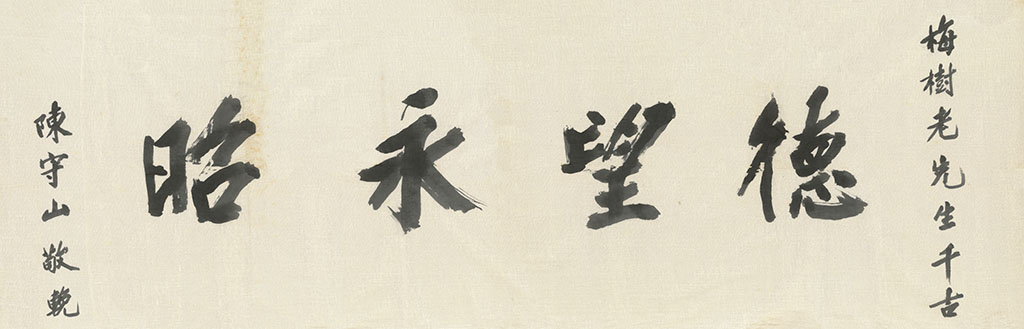 梅樹老先生千古
德望永昭
陳守山敬輓